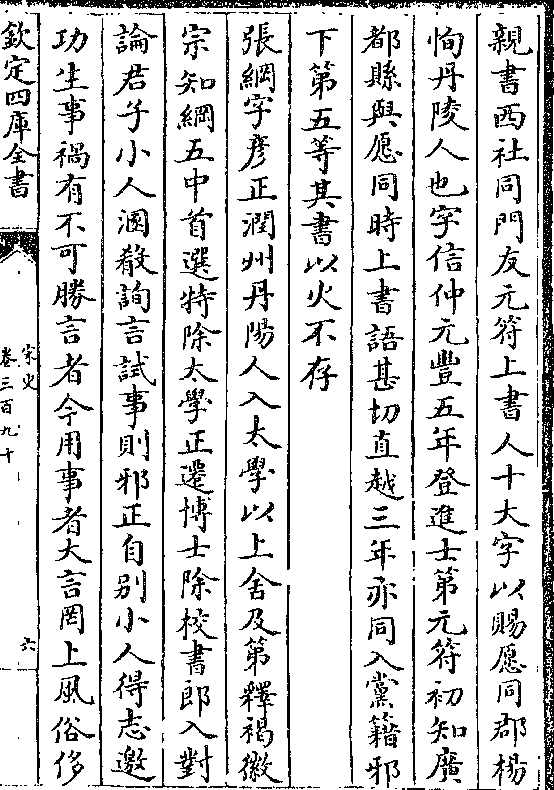 親書西社同門友元符上書人十大字以賜愿同郡楊
恂丹陵人也字信仲元豐五年登進士第元符初知廣
都縣與愿同時上書語甚切直越三年亦同入黨籍邪
下第五等其書以火不存
張綱字彥正潤州丹陽人入太學以上舍及第釋褐徽
宗知綱五中首選特除太學正遷博士除校書郎入對
論君子小人溷殽詢言試事則邪正自別小人得志邀
功生事禍有不可勝言者今用事者大言罔上風俗侈
欽定四庫全書
宋史
卷三百九十
六